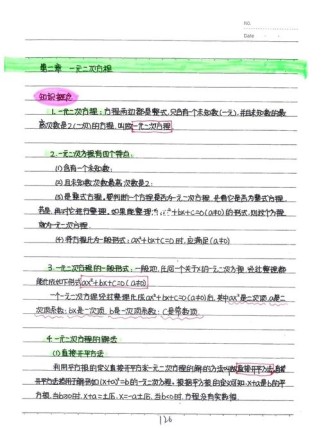 NO.
Date
第二章 一元二次方程
知识概念
1. 一元二次方程：方程两边都是整式，只含有一个未知数(一元)，并且未知数的最
高次数是2(二次)的方程，叫做一元二次方程
2. 一元二次方程有四个特点：
(1) 含有一个未知数；
(2) 且未知数次数最高次数是2；
(3) 是整式方程，要判断一个方程是否为一元二次方程，先看它是否为整式方程，
若是，再对它进行整理。如果能整理为ax²+bx+c=0(a≠0)的形式，则这个方程
就为一元二次方程
(4) 将方程化为一般形式：ax²+bx+c=0时，应满足(a≠0)
3. 一元二次方程的一般形式：一般地，任何一个关于x的一元二次方程，经过整理都
能化成如下形式ax²+bx+c=0(a≠0)
一个一元二次方程经过整理化成ax²+bx+c=0(a≠0)后，其中ax²是二次项，a是二
次项系数；bx是一次项，b是一次项系数；c是常数项
4. 一元二次方程的解法
(1) 直接开平方法
利用平方根的定义直接开平方求一元二次方程的解的方法叫做直接开平方法，直接
开平方法适用于解形如(x+a)²=b的一元二次方程。根据平方根的定义可知，x+a是b的平
方根，当b≥0时，x+a=±√b，x=-a±√b，当b<0时，方程没有实数根
126